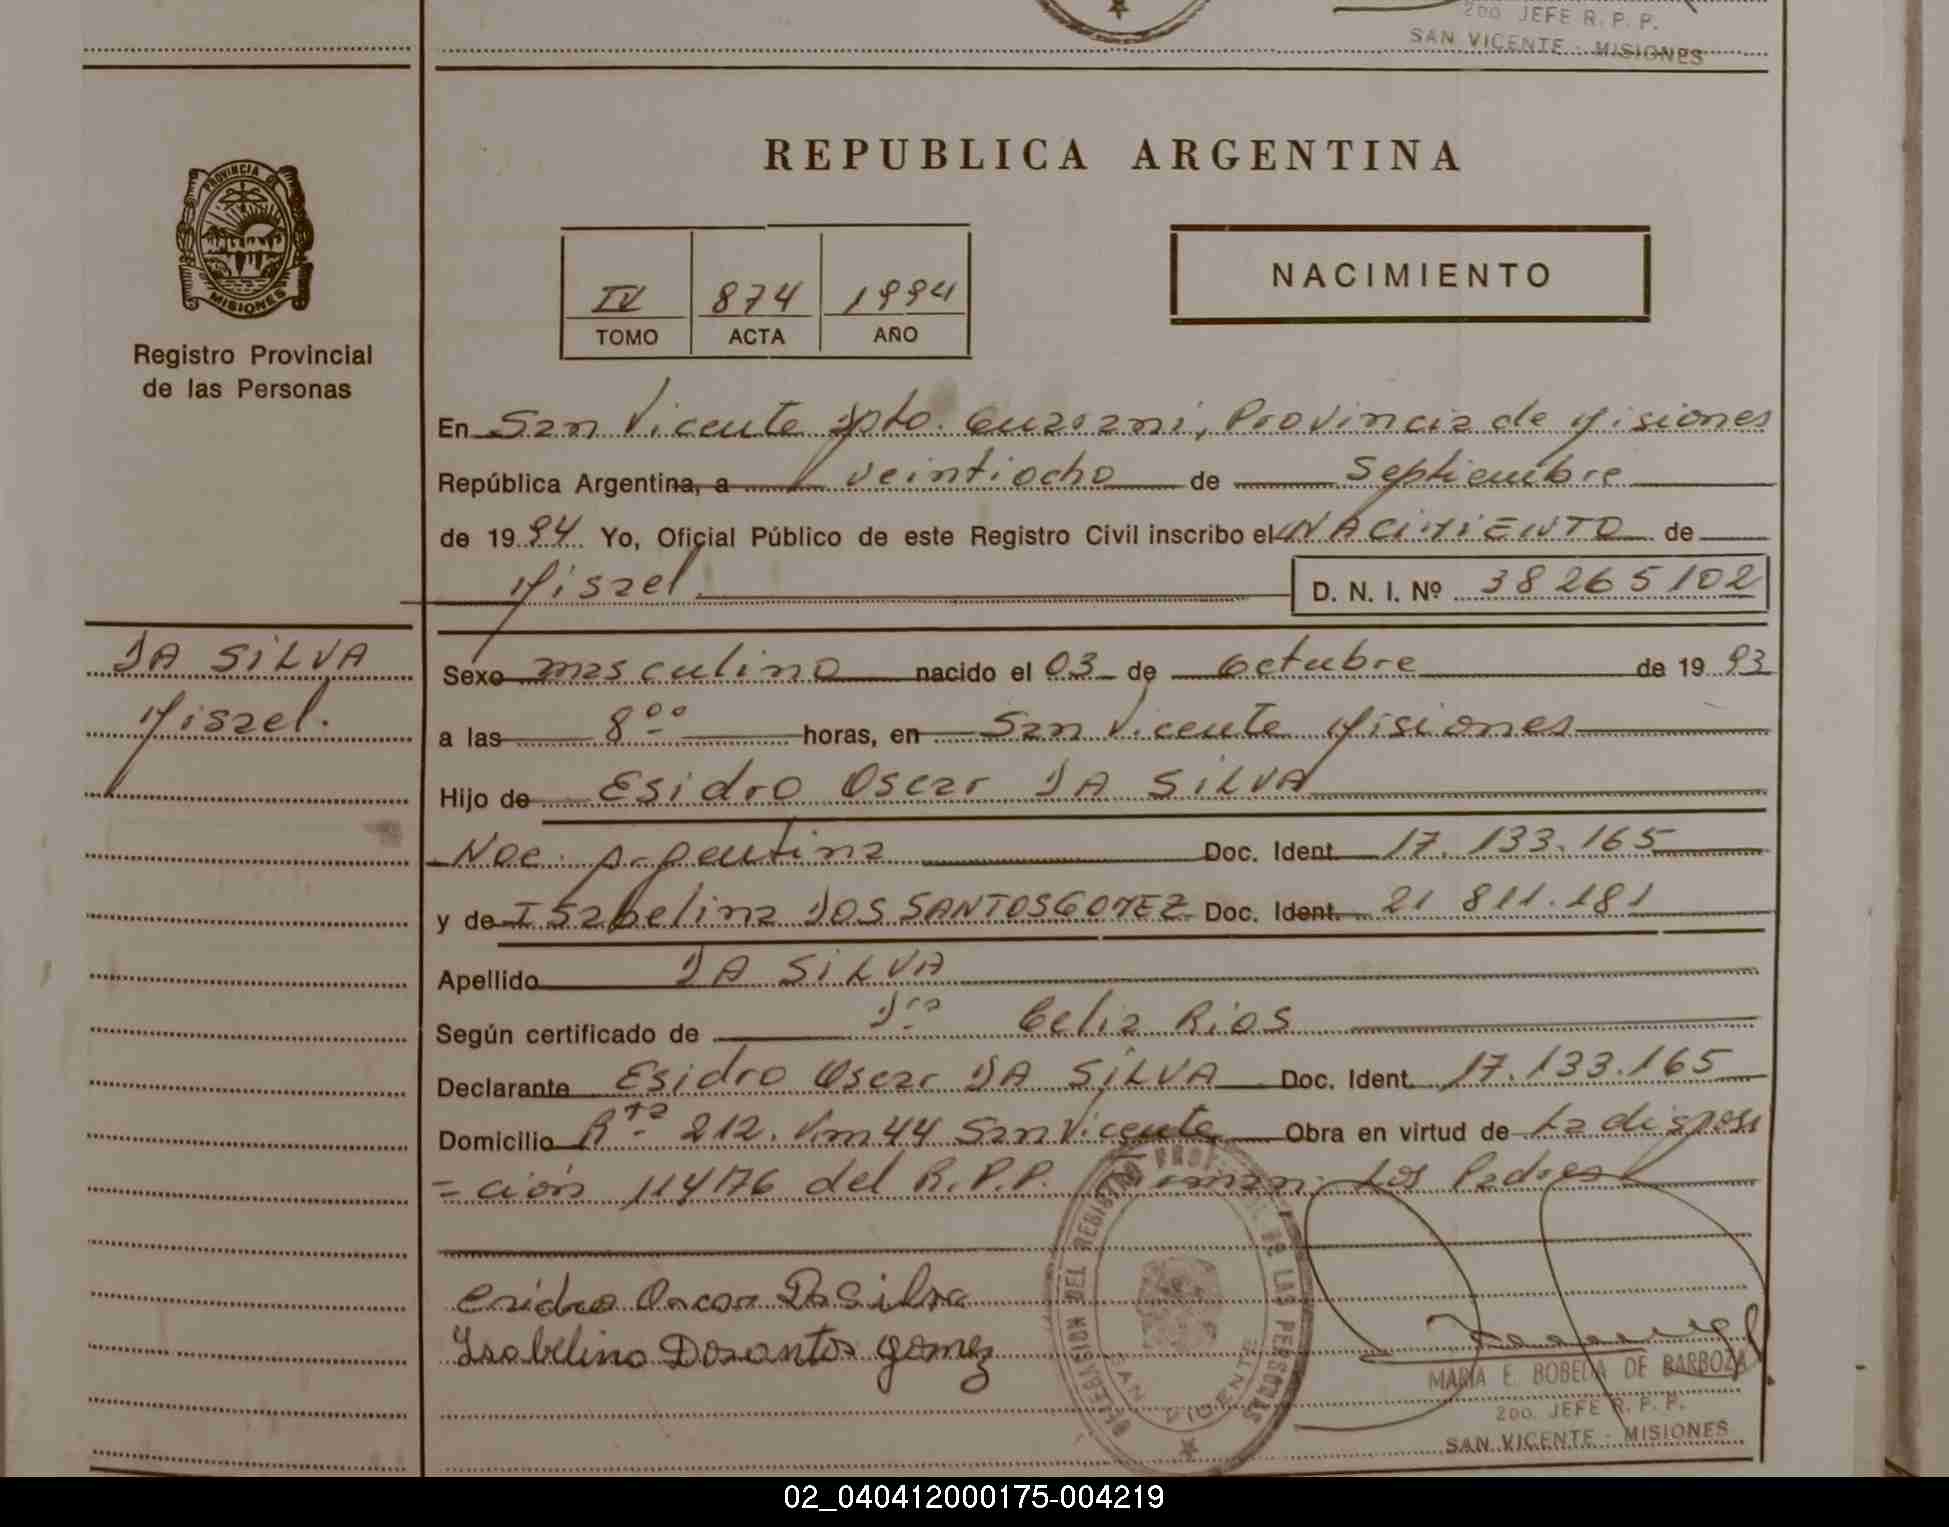 200 JEFE R. P. P.
SAN VICENTE - MISIONES
REPUBLICA ARGENTINA
PROVINCIA DE
MISIONES
Registro Provincial
de las Personas
IV 874 1994
TOMO ACTA AÑO
NACIMIENTO
En San Vicente Dpto. Guarani, Provincia de Misiones
República Argentina, a veintiocho de Septiembre
de 1994 Yo, Oficial Público de este Registro Civil inscribo el NACIMIENTO de
Misael D. N. I. Nº 38265102
DA SILVA
Misael.
Sexo masculino nacido el 03 de Octubre de 1993
a las 8⁰⁰ horas, en San Vicente Misiones
Hijo de Esidro Oscar DA SILVA
Nac. Argentina Doc. Ident. 17.133.165
y de Isabelina DOS SANTOS GOMEZ Doc. Ident. 21 811.181
Apellido DA SILVA
Según certificado de Dra Celia Rios
Declarante Esidro Oscar DA SILVA Doc. Ident. 17.133.165
Domicilio Rta 212. Km 44 San Vicente Obra en virtud de La disposi
=ción 114/76 del R.P.P. Firman: Los Padres
esidro Oscar Da Silva
Ysabelina Dosantos gomez
DELEGACION DEL REGISTRO PROV. DE LAS PERSONAS
SAN VICENTE
MARIA E. BOBEDA DE BARBOZA
200. JEFE R. P. P.
SAN VICENTE - MISIONES
02_040412000175-004219